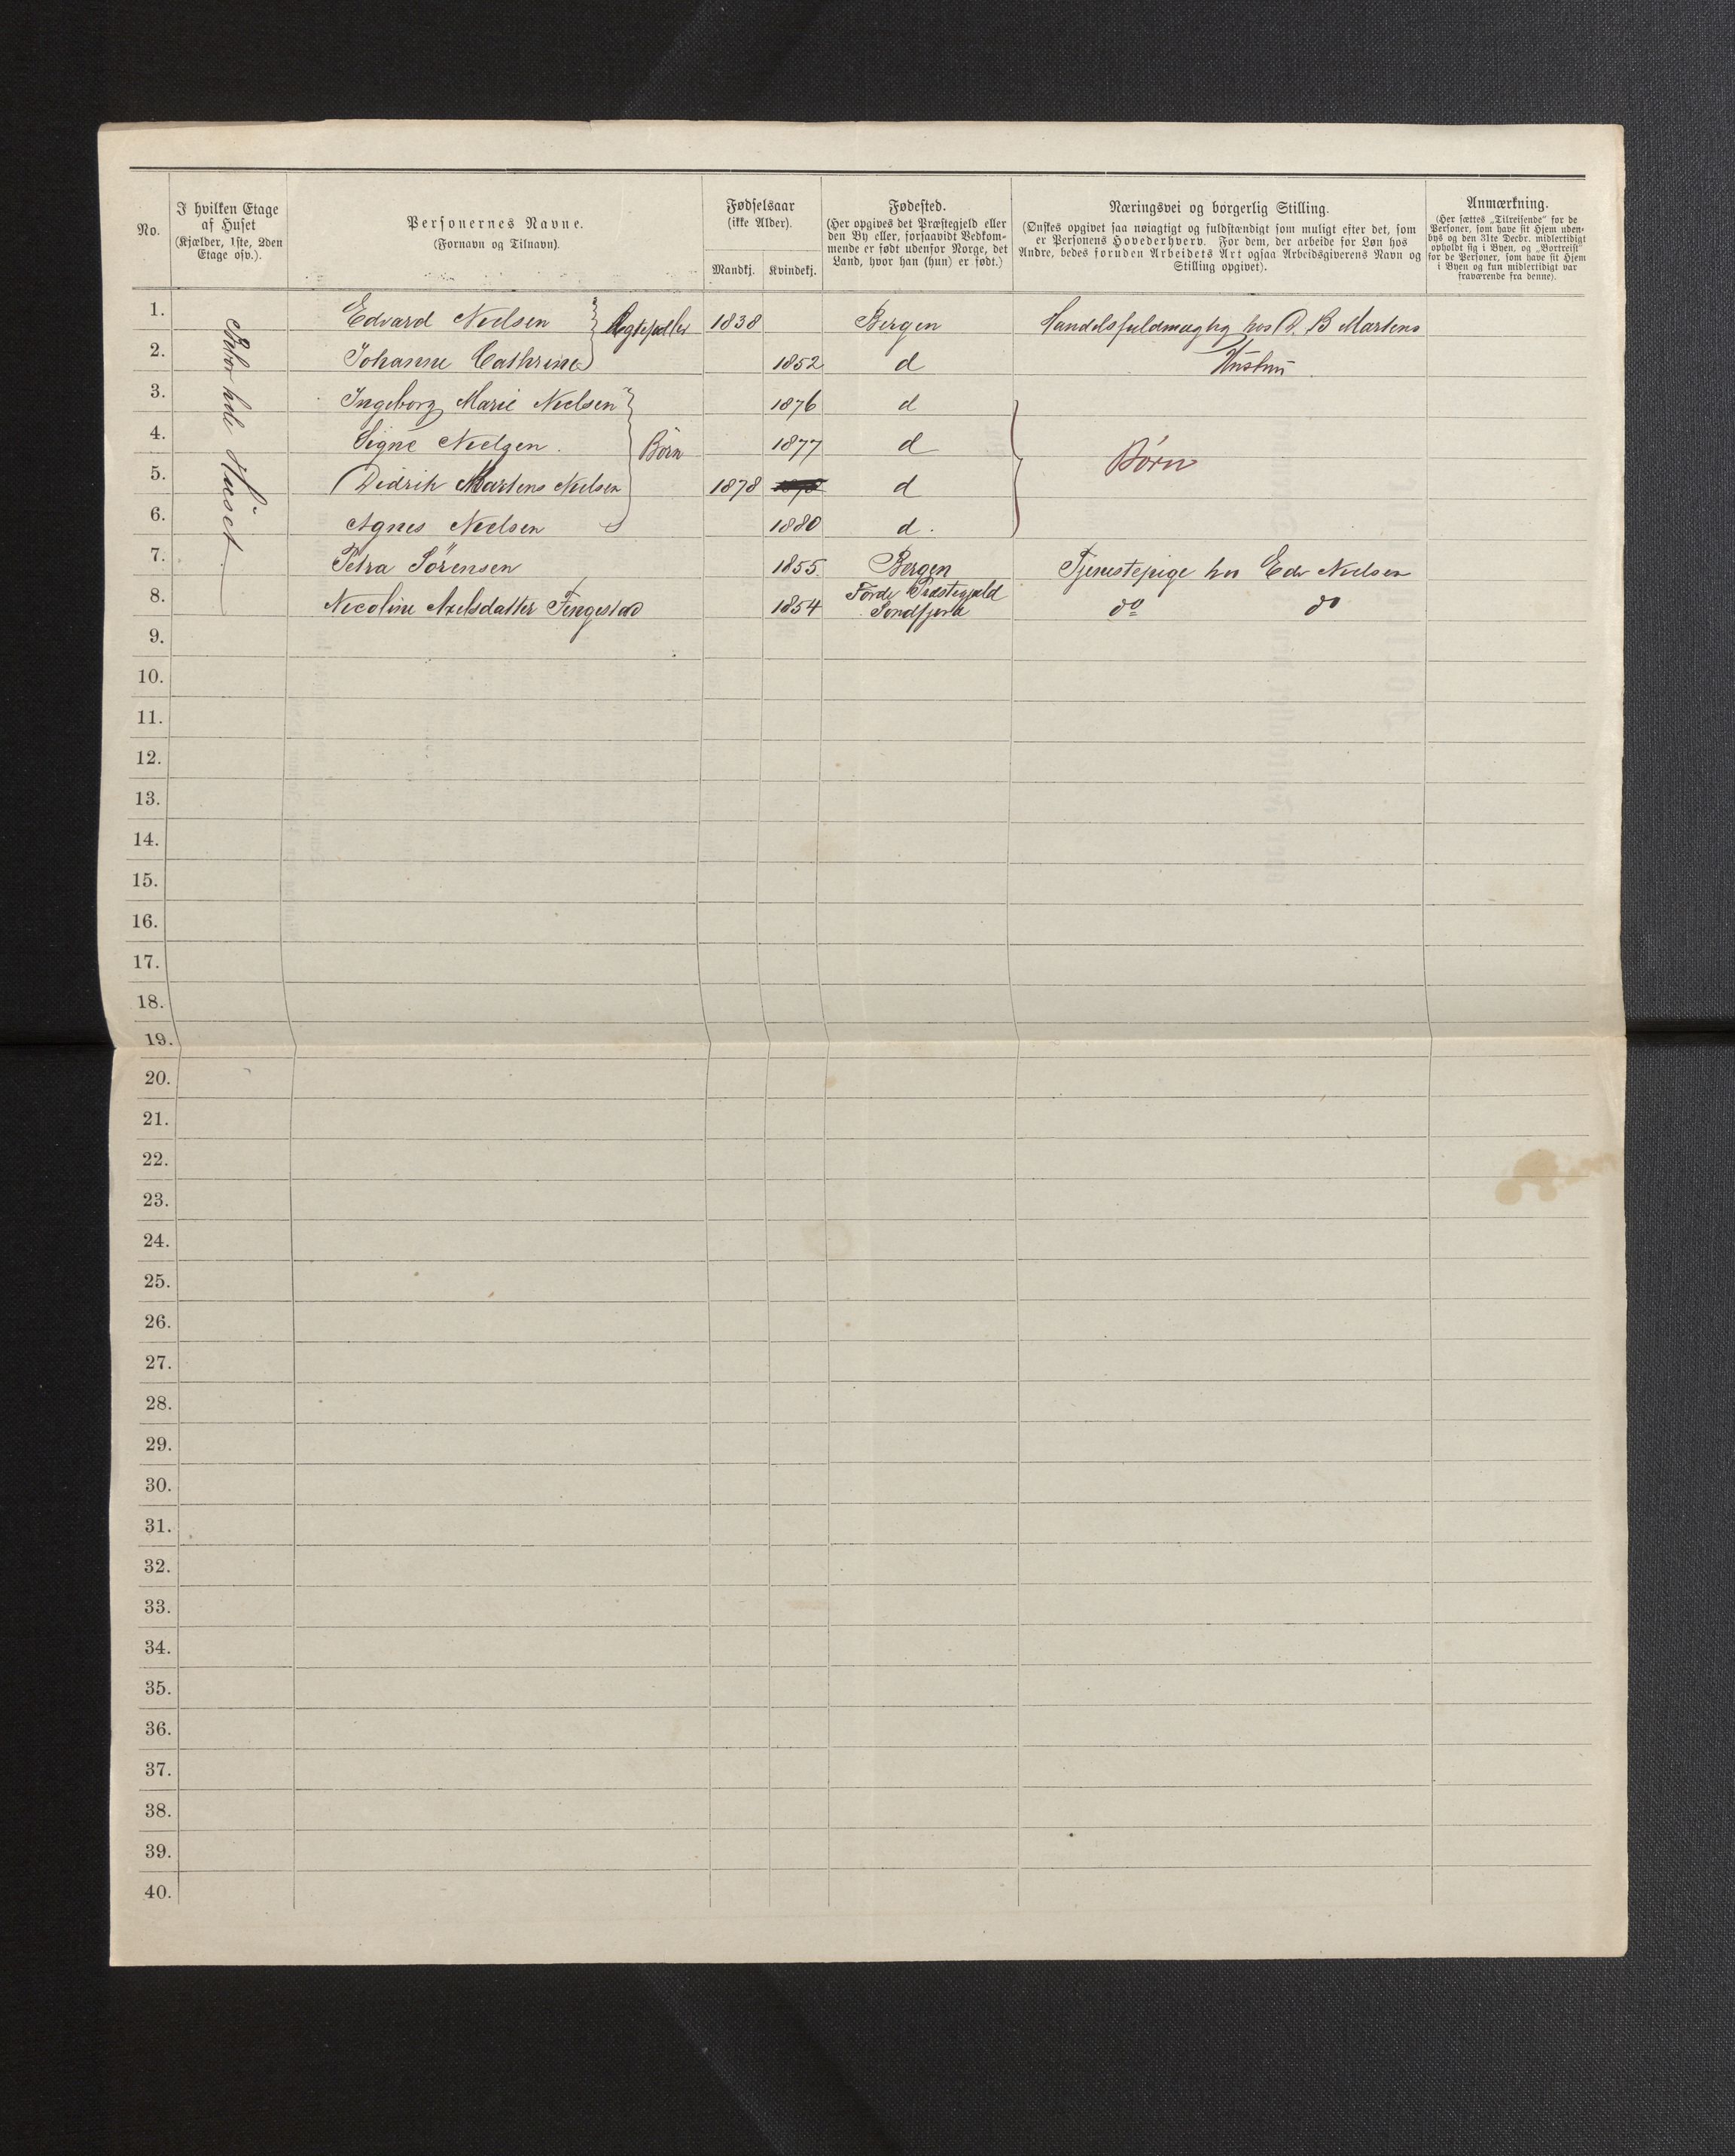 No.
I hvilken Etage
af Huset
(Kjælder, 1ste, 2den
Etage osv.).
Personernes Navne.
(Fornavn og Tilnavn).
Fødselsaar
(ikke Alder).
Mandkj. Kvindekj.
Fødested.
(Her opgives det Præstegjeld eller
den By eller, forsaavidt Vedkom-
mende er født udenfor Norge, det
Land, hvor han (hun) er født.)
Næringsvei og borgerlig Stilling.
(Ønskes opgivet saa nøiagtigt og fuldstændigt som muligt efter det, som
er Personens Hovederhverv. For dem, der arbeide for Løn hos
Andre, bedes foruden Arbeidets Art ogsaa Arbeidsgiverens Navn og
Stilling opgivet).
Anmærkning.
(Her sættes „Tilreisende“ for de
Personer, som have sit Hjem uden-
bys og den 31te Decbr. midlertidigt
opholdt sig i Byen, og „Bortreist“
for de Personer, som have sit Hjem
i Byen og kun midlertidigt var
fraværende fra denne).
Bebor hele Huset
1. Edvard Nielsen } Ægtefolk 1838 Bergen Handelsfuldmægtig hos D. B Martens
2. Johanne Cathrine 1852 d Hustru
3. Ingeborg Marie Nielsen 1876 d
4. Signe Nielsen. } Börn 1877 d } Börn
5. Didrik Martens Nielsen 1878 d
6. Agnes Nielsen 1880 d.
7. Petra Sörensen 1855. Bergen Tjenestepige hos Edv Nielsen
8. Nicoline Axelsdatter 1854 Förde Præstegjæld Söndfjord do do
9.
10.
11.
12.
13.
14.
15.
16.
17.
18.
19.
20.
21.
22.
23.
24.
25.
26.
27.
28.
29.
30.
31.
32.
33.
34.
35.
36.
37.
38.
39.
40.